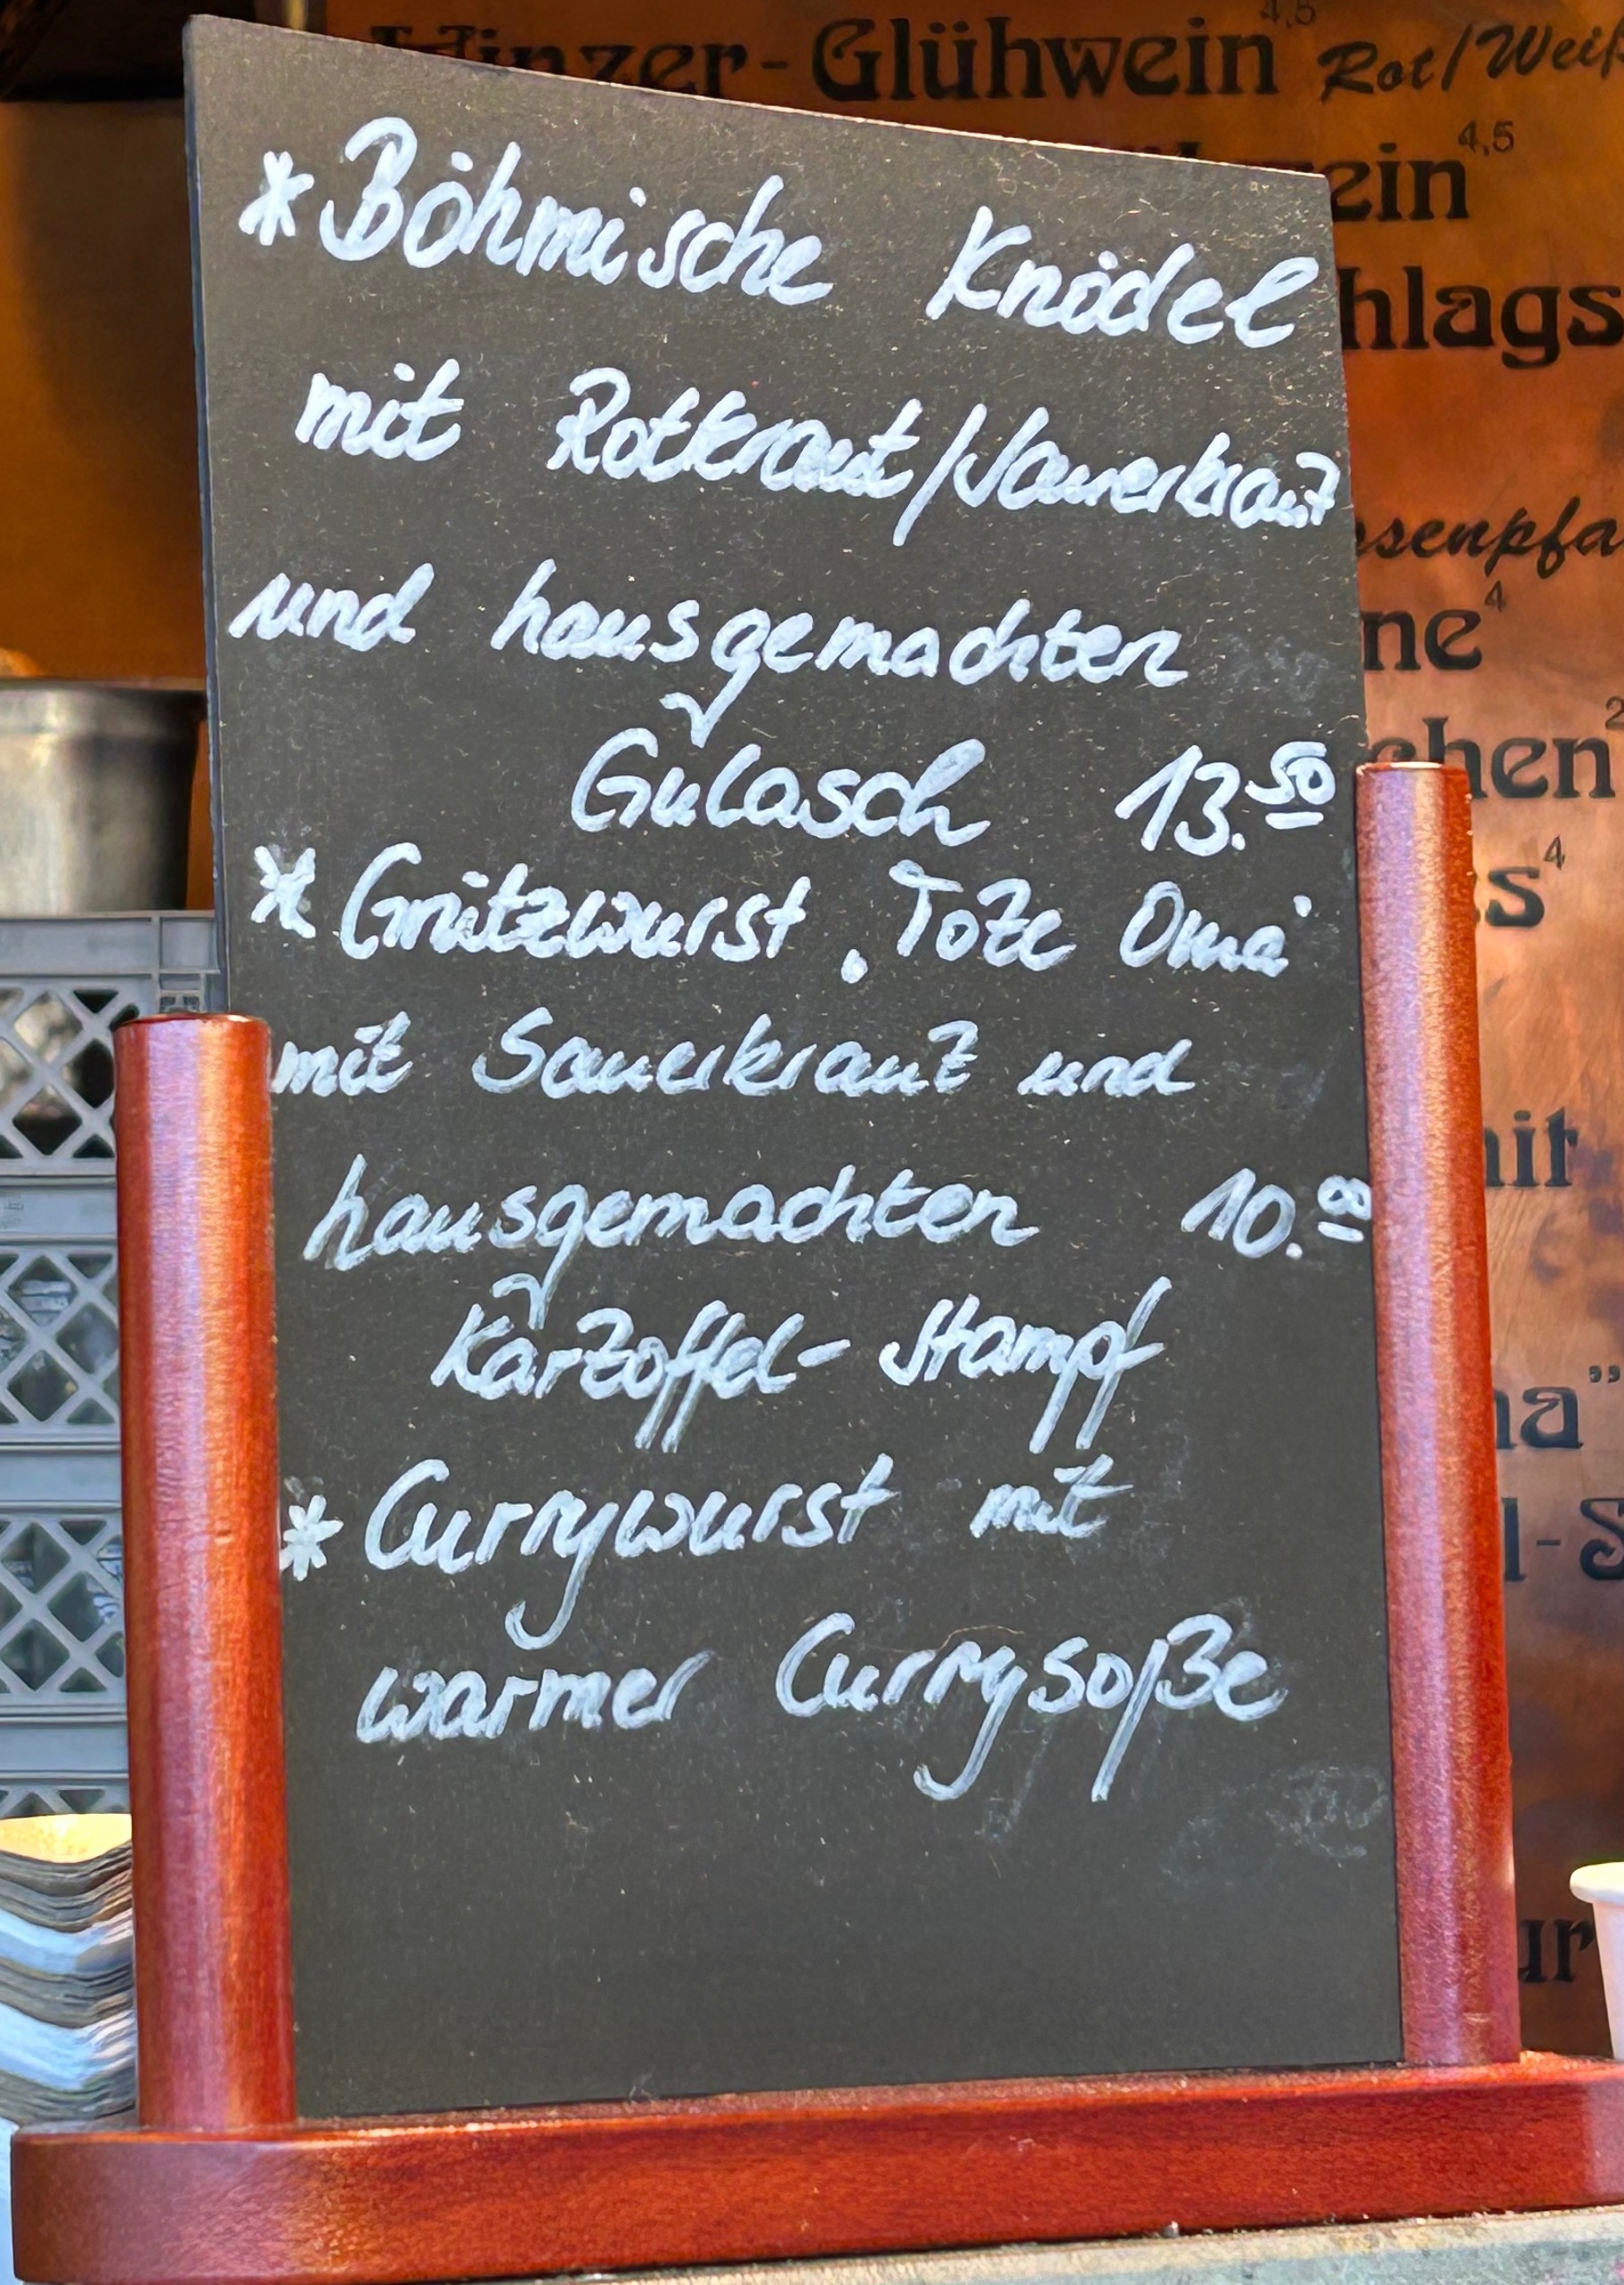 Winzer-Glühwein 4,5 Rot/Weiß
ein 4,5
hlags
ssenpfa
ne 4
chen 2
s 4
mit
na”
l-S
ur
* Böhmische Knödel
mit Rotkraut/Sauerkraut
und hausgemachten
Gulasch 13.50
* Grützwurst „Tote Oma“
mit Sauerkraut und
hausgemachten 10.00
Kartoffel-Stampf
* Currywurst mit
warmer Currysoße